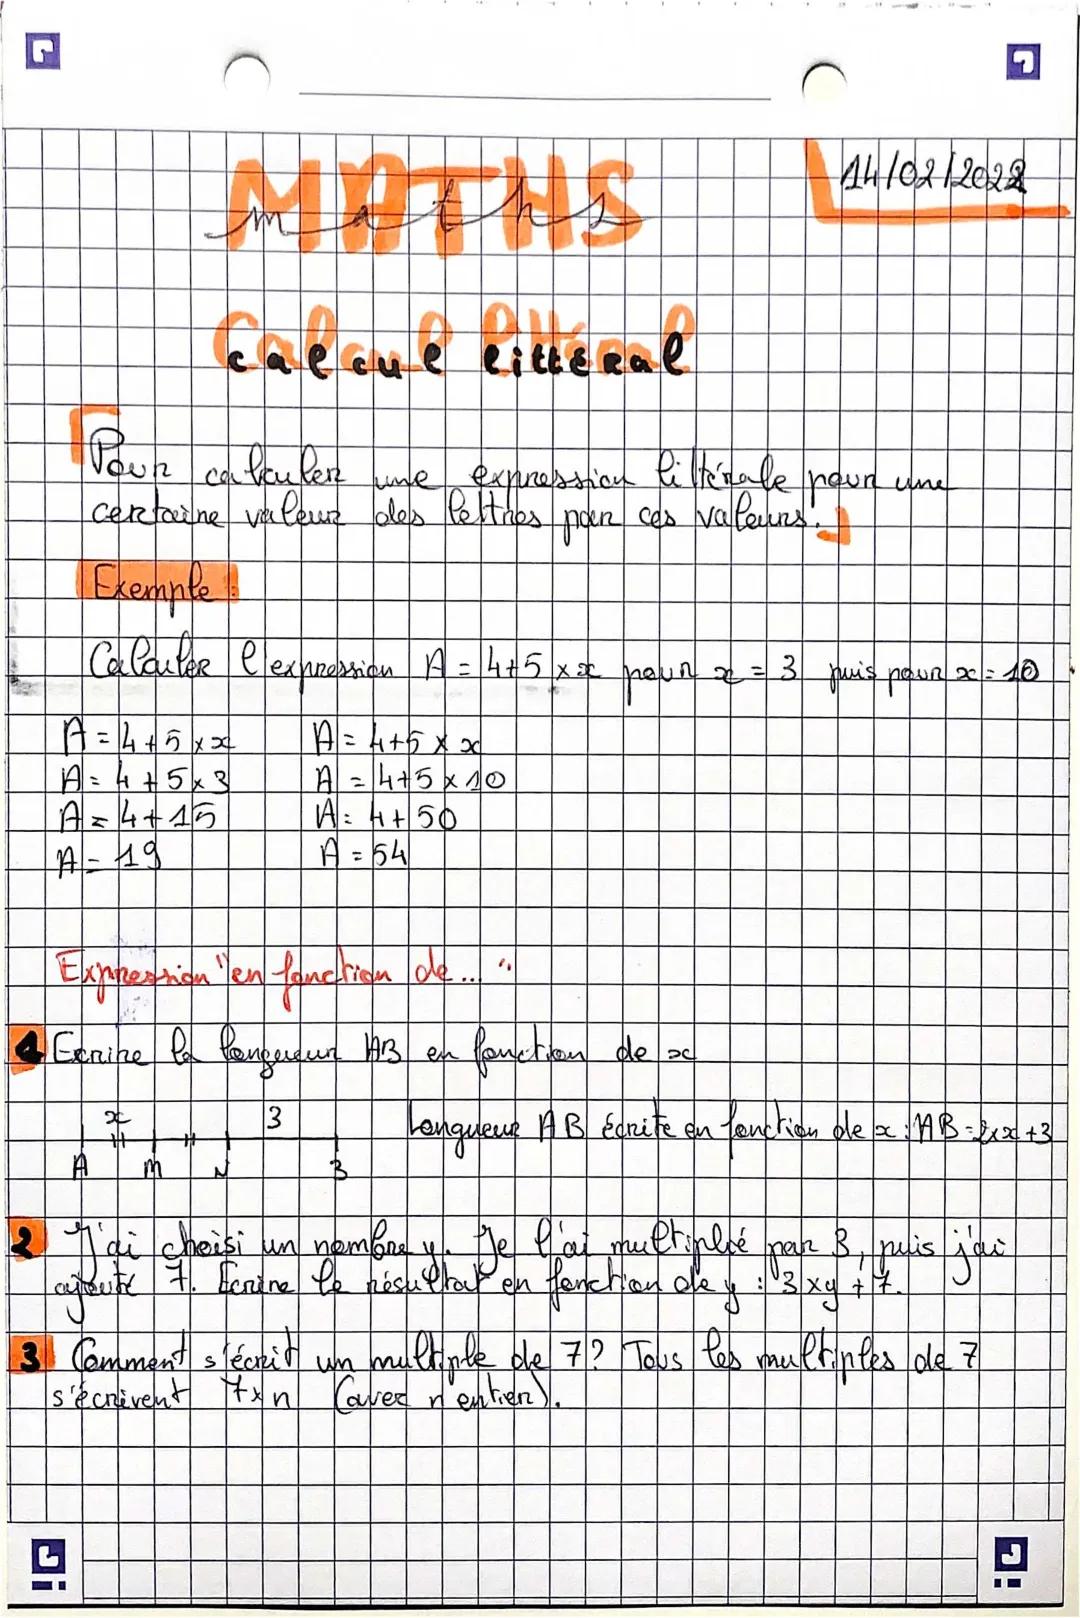 14/02/2022
MATHS
maths
Calcul littéral
Pour calculer une expression littérale pour une
certaine valeur des lettres par ces valeurs.
Exemple :
Calculer l'expression A = 4+5 × x pour x = 3 puis pour x = 10
A = 4 + 5 × x A = 4+5 × x
A = 4 + 5 × 3 A = 4+5 × 10
A = 4 + 15 A = 4 + 50
A = 19 A = 54
Expression "en fonction de... "
1 Ecrire la longueur AB en fonction de x
x 3 Longueur AB écrite en fonction de x : AB = 2×x+3
A M N B
2 J'ai choisi un nombre y. Je l'ai multiplié par 3, puis j'ai
ajouté 7. Ecrire le résultat en fonction de y : 3 × y + 7.
3 Comment s'écrit un multiple de 7? Tous les multiples de 7
s'écrivent 7 × n (avec n entier).